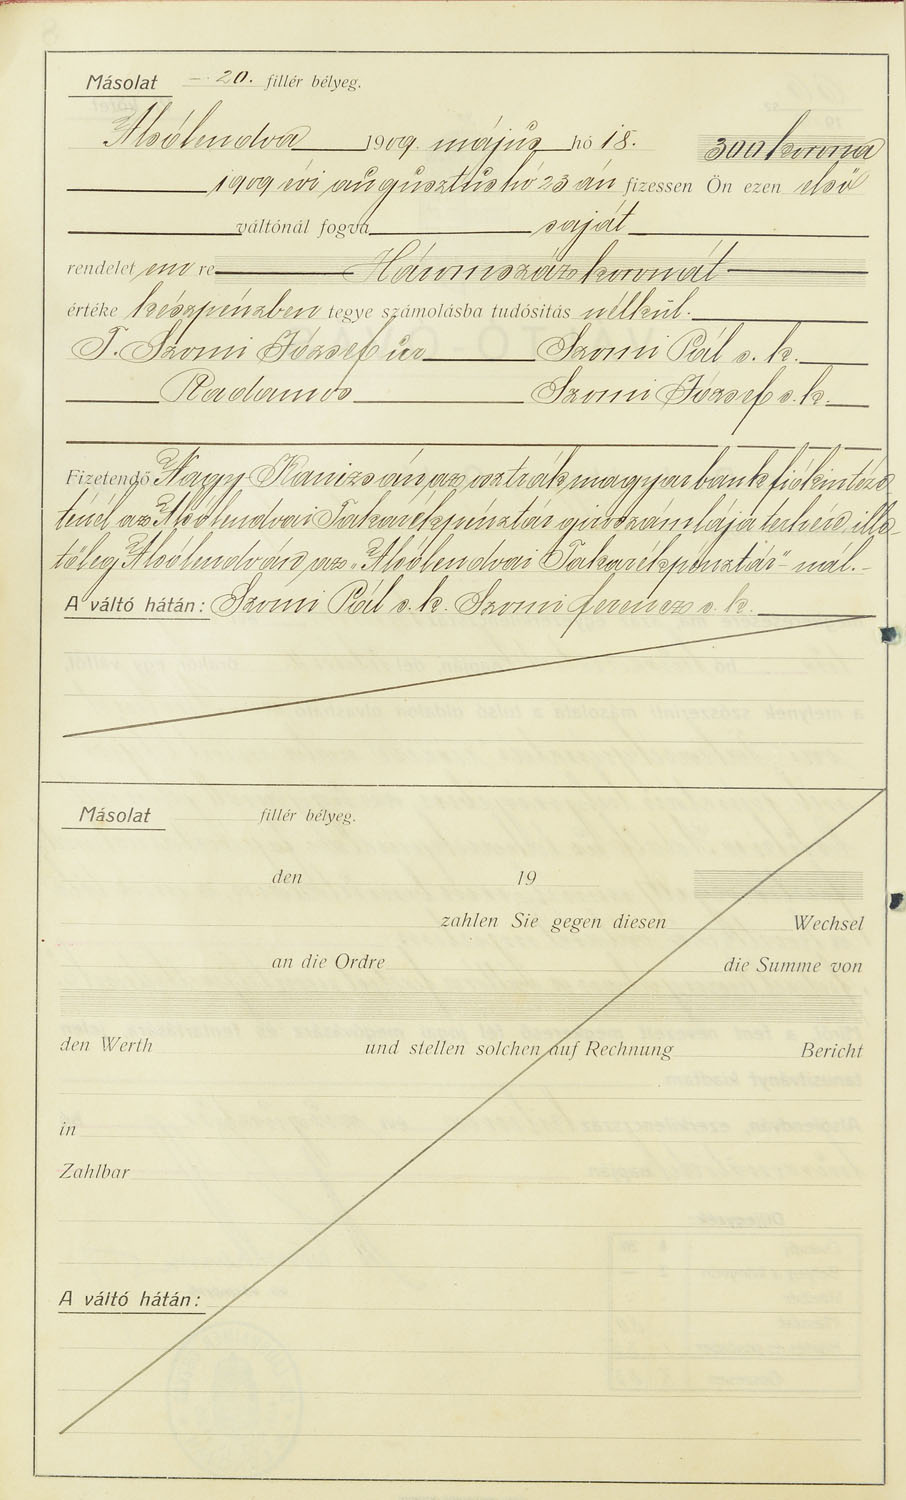 Másolat — 20. fillér bélyeg.
Alsólendva 1909. május hó 18. 300 korona
1909 évi augusztus hó 23 án fizessen Ön ezen első
váltónál fogva saját
rendelet em re Háromszáz koronát
értéke készpénzben tegye számolásba tudósitás nélkül.
T. Szomi József úr Szomi Pál s. k.
Radamos Szomi József s. k.
Fizetendő Nagy Kanizsán az osztrák magyar bank fiókinté
ténél az Alsólendvai Takarékpénztár giroszámlája terhére ille-
tőleg Alsólendván, az „Alsólendvai Takarékpénztár"-nál.-
A váltó hátán: Szomi Pál s. k. Szomi Ferencz s. k.
Másolat fillér bélyeg.
den 19
zahlen Sie gegen diesen Wechsel
an die Ordre die Summe von
den Werth und stellen solchen auf Rechnung Bericht
in
Zahlbar
A váltó hátán: